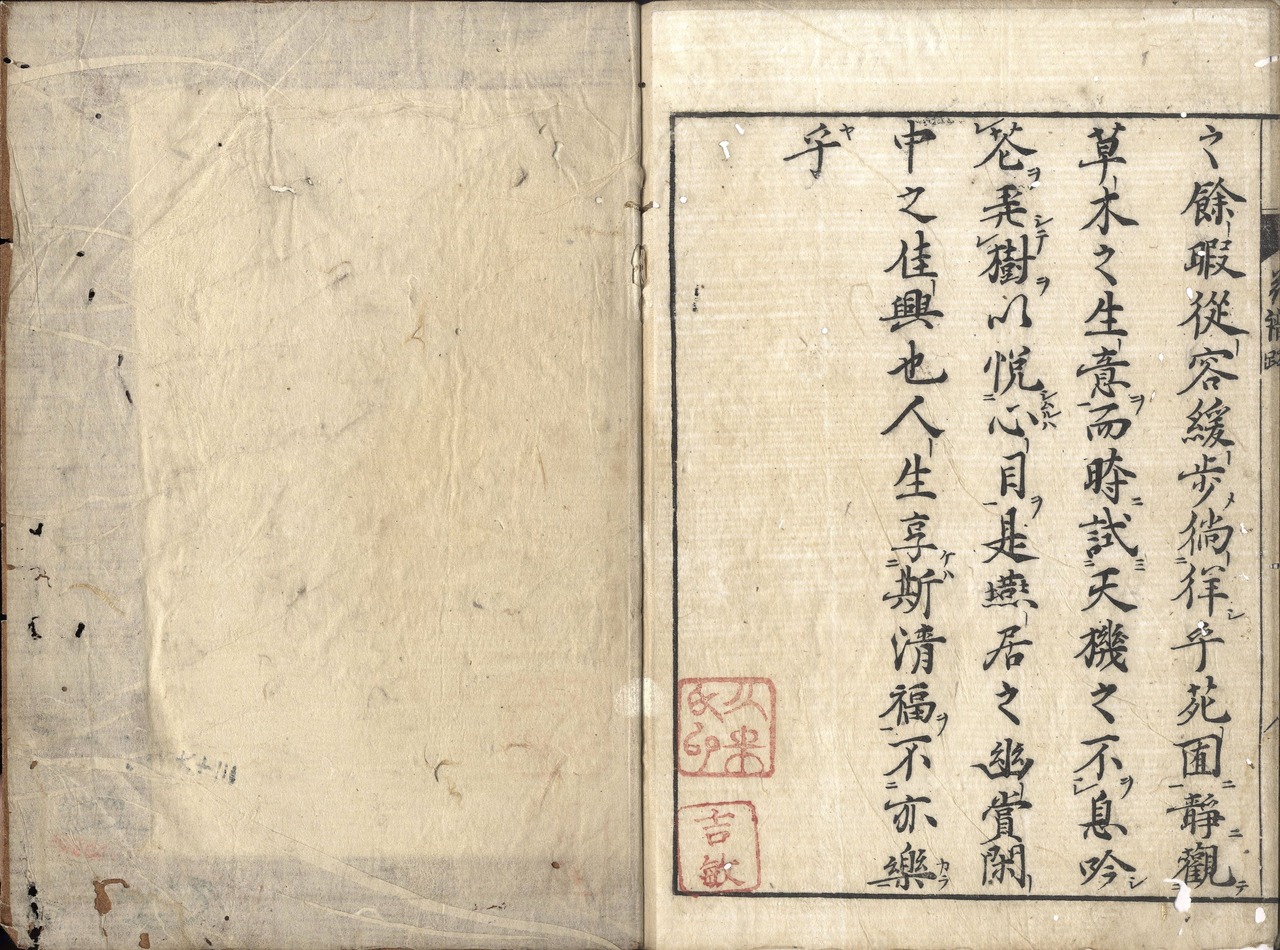 之餘暇從容緩歩徜徉乎苑囿靜觀
草木之生意而時試天機之不息吟
花弄樹以悦心目是燕居之幽賞閑
中之佳興也人生享斯清福不亦樂
乎
久米
氏印
吉
敏